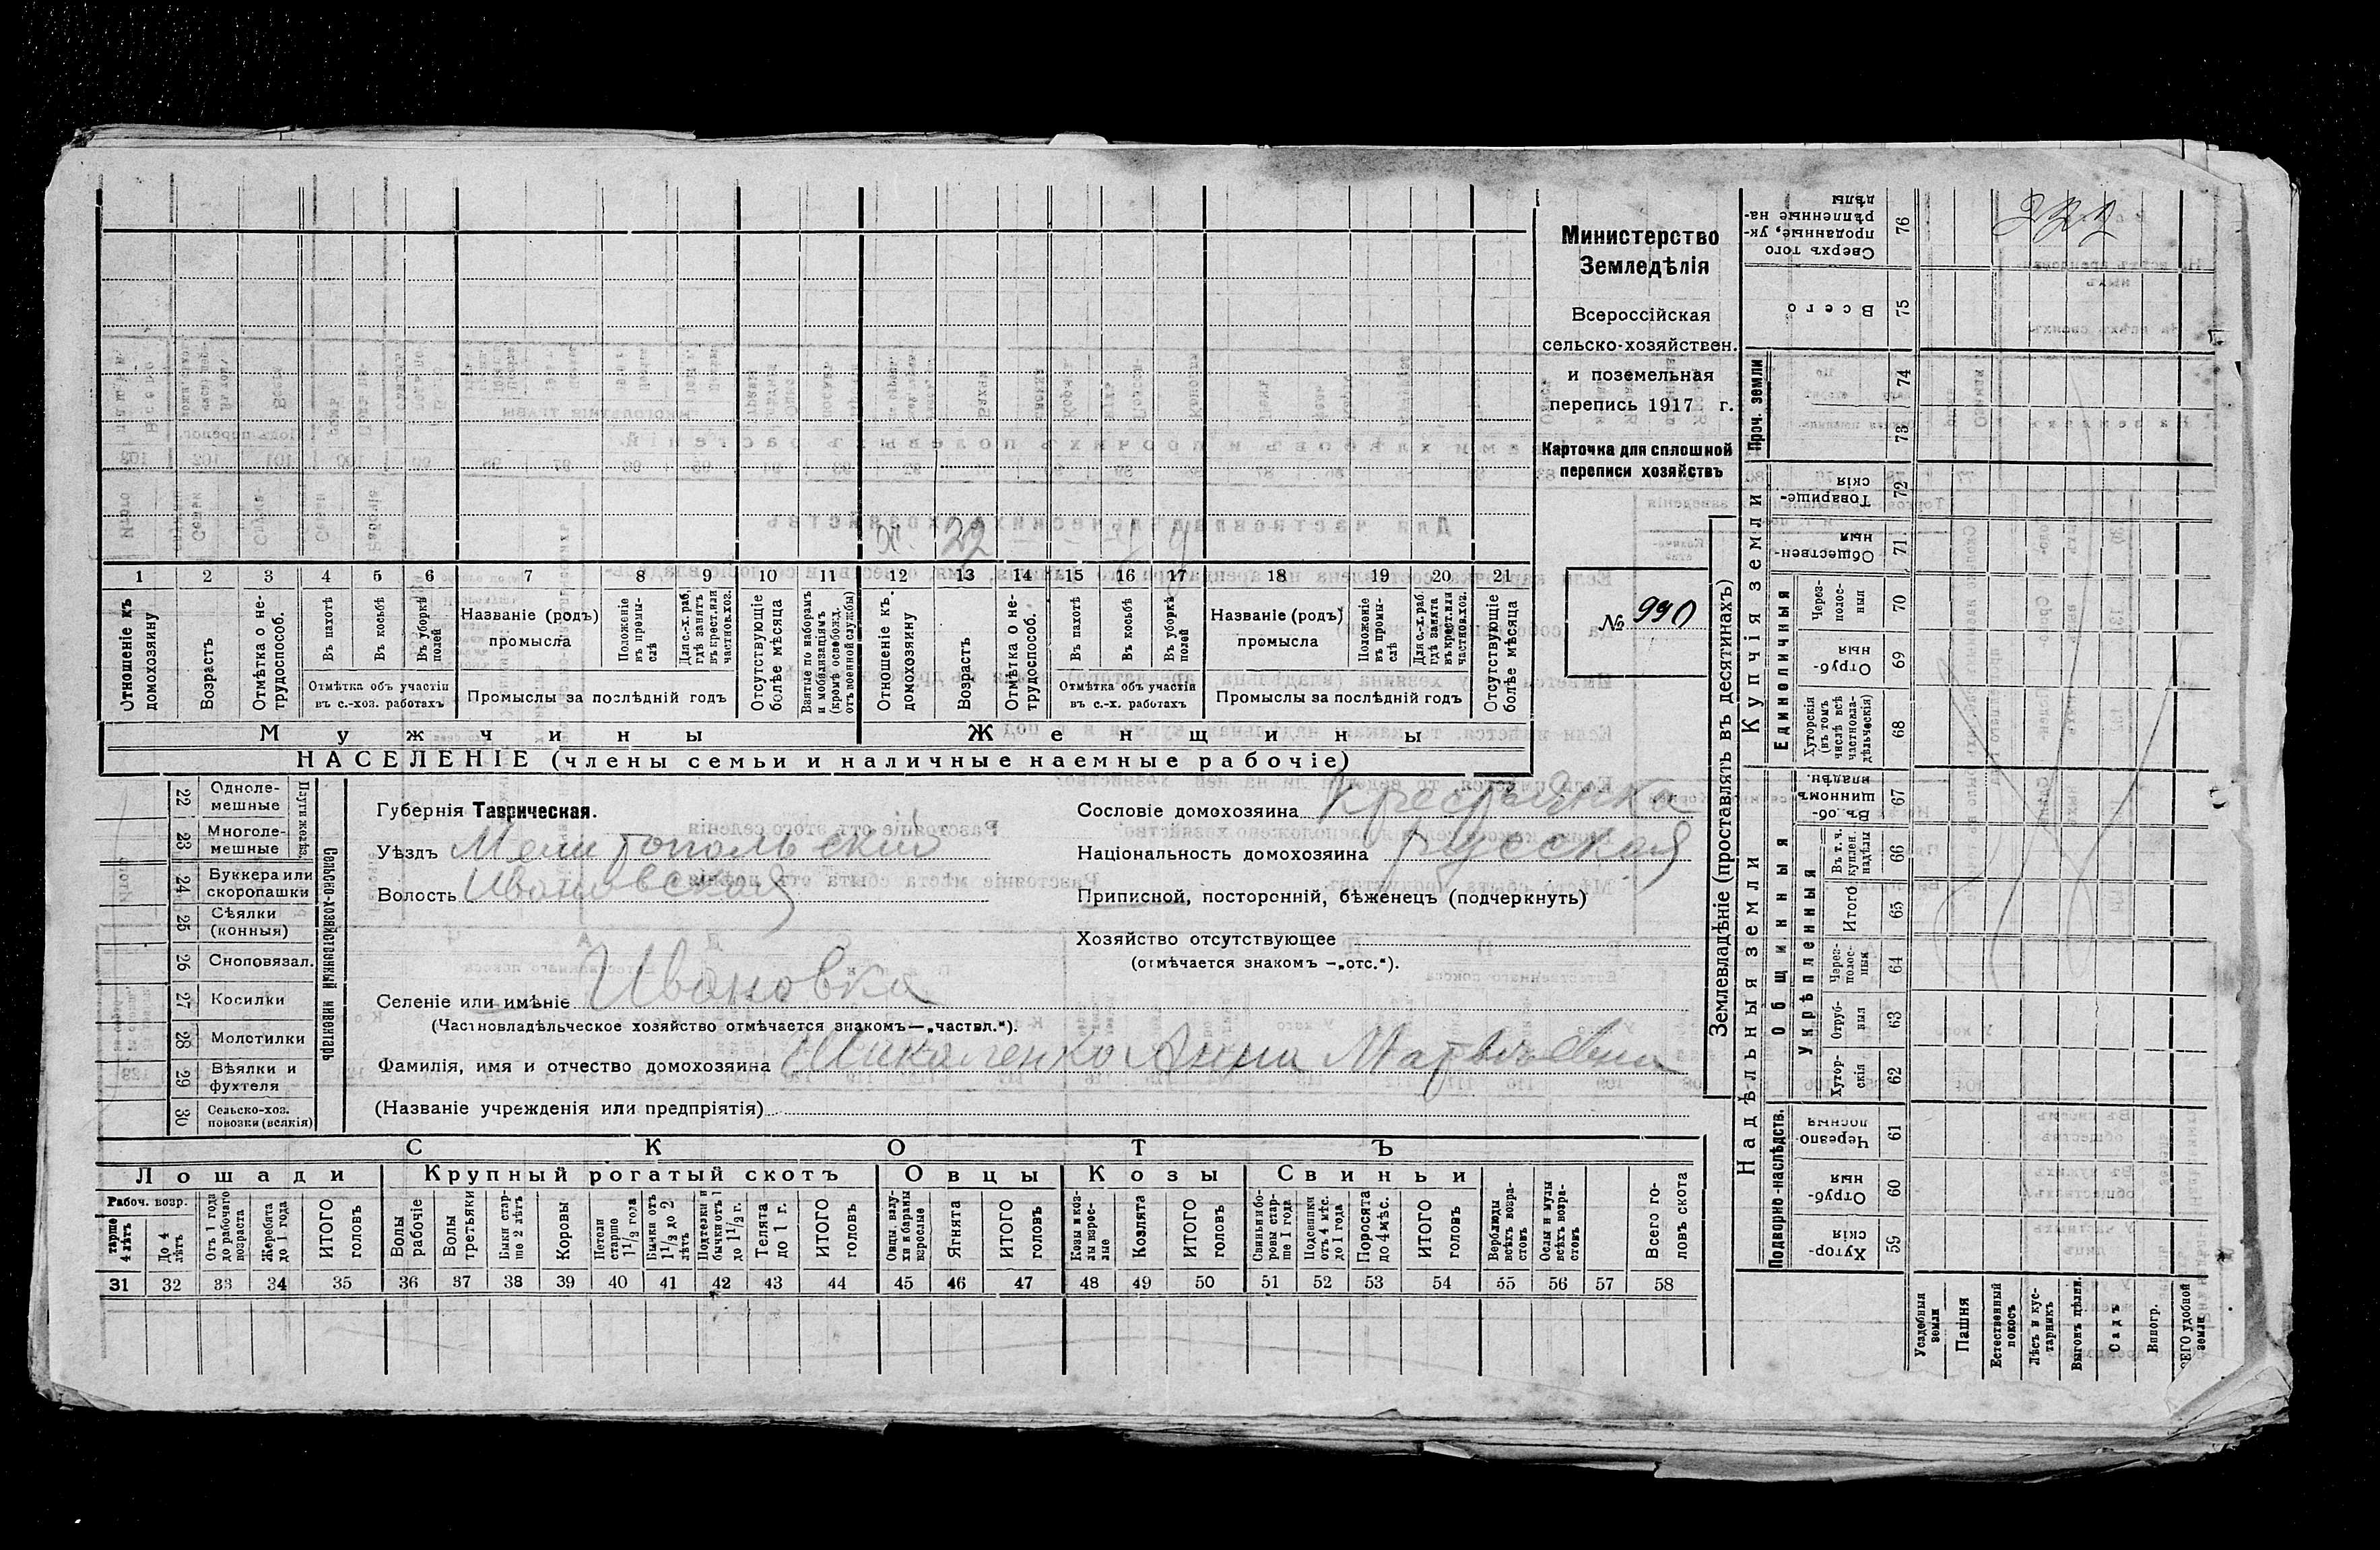 1 2 3 4 5 6 7 8 9 10 11 12 13 14 15 16 17 18 19 20 21
22
Отношеніе къ домохозяину
Возрастъ
Отмѣтка о не-
трудоспособ.
Въ пахотѣ
Въ косьбѣ
Въ уборкѣ полей
Отмѣтка объ участіи
въ с.-хоз. работахъ
Названіе (родъ)
промысла
Положеніе въ промы-
слѣ
Для с.-х. раб.
гдѣ занятъ
въ крест. или
частнов. хоз.
Промыслы за послѣдній годъ
Отсутствующіе
болѣе мѣсяца
Взятые по наборамъ
и мобилизаціямъ
(кромѣ освобожд.
отъ военной службы)
Отношеніе къ
домохозяину
Возрастъ
Отмѣтка о не-
трудоспособ.
Въ пахотѣ
Въ косьбѣ
Въ уборкѣ
полей
Отмѣтка объ участіи
въ с.-х. работахъ
Названіе (родъ)
промысла
Положеніе
въ промы-
слѣ
Для с.-х. раб.
гдѣ занята
въ крест. или
частнов. хоз.
Промыслы за послѣдній годъ
Отсутствующіе
болѣе мѣсяца
Мужчины
Женщины
НАСЕЛЕНІЕ (члены семьи и наличные наемные рабочіе)
Министерство
Земледѣлія
Всероссійская
сельско-хозяйствен.
и поземельная
перепись 1917 г.
Карточка для сплошной
переписи хозяйствъ
№ 990
Сельско-хозяйственный инвентарь
Плуги желѣз.
22 Одноле-
мешные
23 Многоле-
мешные
24 Буккера или
скоропашки
25 Сѣялки
(конныя)
26 Сноповязал.
27 Косилки
28 Молотилки
29 Вѣялки и
фухтеля
30 Сельско-хоз.
повозки (всякія)
Губернія Таврическая.
Уѣздъ Мелитопольскій
Волость Ивановская
Селеніе или имѣніе Ивановка
(Частновладѣльческое хозяйство отмѣчается знакомъ—„частвл.“).
Фамилія, имя и отчество домохозяина Шикаленко Анна Матвѣевна
(Названіе учрежденія или предпріятія)
Сословіе домохозяина крестьянка
Національность домохозяина Русская
Приписной, посторонній, бѣженецъ (подчеркнуть)
Хозяйство отсутствующее
(отмѣчается знакомъ —„отс.“).
СКОТЪ
Лошади
Крупный рогатый скотъ
Овцы
Козы
Свиньи
Рабоч. возр.
До 4
лѣтъ
Отъ 1 года
до рабочаго
возраста
Жеребята
до 1 года
ИТОГО
головъ
Волы
рабочіе
Волы
третьяки
Быки стар-
ше 2 лѣтъ
Коровы
Нетели
старше
1 1/2 года
Бычки отъ
1 1/2 до 2
лѣтъ
Подтелки и
бычки отъ 1
до 1 1/2 г.
Телята
до 1 г.
ИТОГО
головъ
Овцы валу-
хи и бараны
взрослые
Ягнята
ИТОГО
головъ
Козы и коз-
лы взрос-
лые
Козлята
ИТОГО
головъ
Свиньи и бо-
ровы стар-
ше 1 года
Подсвинки
отъ 4 мѣс.
до 1 года
Поросята
до 4 мѣс.
ИТОГО
головъ
Верблюды
всѣхъ возра-
стовъ
Ослы и мулы
всѣхъ возра-
стовъ
Всего го-
ловъ скота
31 32 33 34 35 36 37 38 39 40 41 42 43 44 45 46 47 48 49 50 51 52 53 54 55 56 57 58
Землевладѣніе (проставлять въ десятинахъ)
Надѣльныя земли
Купчія земли
Проч. земли
Подворно-наслѣдств.
Общинныя
Укрѣпленныя
Единоличныя
Сверхъ того
проданные, ук-
рѣпленные на-
дѣлы
76
Всего
75
74
73
Товарище-
скія
72
Обществен-
ныя
71
Через-
полос-
ныя
70
Отруб-
ныя
69
Хуторскія
(въ томъ
числѣ всѣ
частновла-
дѣльческія)
68
Въ об-
щинномъ
владѣн.
67
Въ т. ч.
куплен.
надѣлы
66
Итого
65
Через-
полос-
ныя
64
Отруб-
ныя
63
Хутор-
скія
62
Черезпо-
лосныя
61
Отруб-
ныя
60
Хутор-
скія
59
Усадебныя
земли
Пашня
Естественный
покосъ
Лѣсъ и кус-
тарникъ
Выгонъ цѣлин.
Садъ
Виногр.